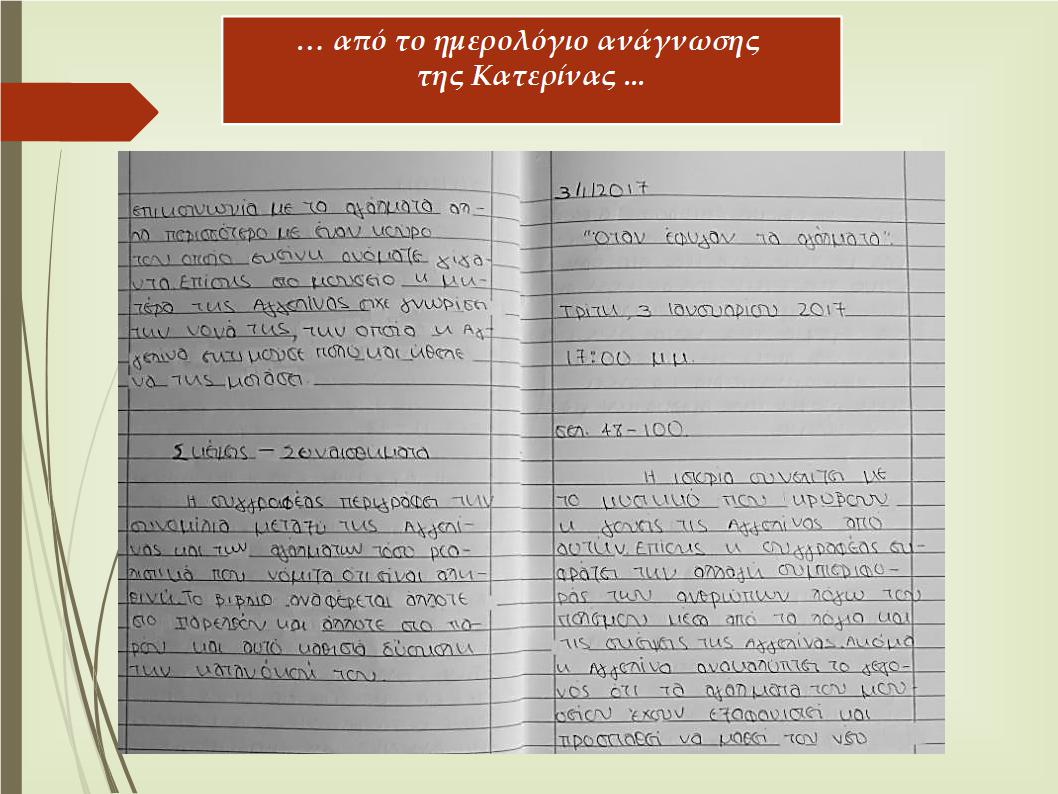 ... από το ημερολόγιο ανάγνωσης
της Κατερίνας ...
επικοινωνία με τα αγάλματα αλ-
λά περισσότερο με έναν κούρο
τον οποίο εκείνη ονόμασε γίγα-
ντα. Επίσης στο μουσείο η μη-
τέρα της Αγγελίνας είχε γνωρίσει
την νονά της, την οποία η Αγ-
γελίνα εκτιμούσε πολύ και ήθελε
να της μοιάσει.
Σκέψεις - Συναισθήματα
Η συγγραφέας περιγράφει την
συνομιλία μεταξύ της Αγγελί-
νας και των αγαλμάτων τόσο ρεα-
λιστικά που νόμιζα ότι είναι αλη-
θινή. Το βιβλίο αναφέρεται άλλοτε
στο παρελθόν και άλλοτε στο πα-
ρόν και αυτό καθιστά δύσκολη
την κατανόησή του.
3/1/2017
"Όταν έφυγαν τα αγάλματα".
Τρίτη, 3 Ιανουαρίου 2017
17:00 μ.μ.
σελ. 48-100.
Η ιστορία συνεχίζει με
το μυστικό που κρύβουν
η γονείς τις Αγγελίνας από
αυτήν. Επίσης η συγγραφέας εκ-
φράζει την αλλαγή συμπεριφο-
ράς των ανθρώπων λόγω του
πολέμου μέσα από τα λόγια και
τις σκέψεις της Αγγελίνας. Ακόμα
η Αγγελίνα ανακαλύπτει το γεγο-
νός ότι τα αγάλματα του μου-
σείου έχουν εξαφανιστεί και
προσπαθεί να μάθει τον νέο